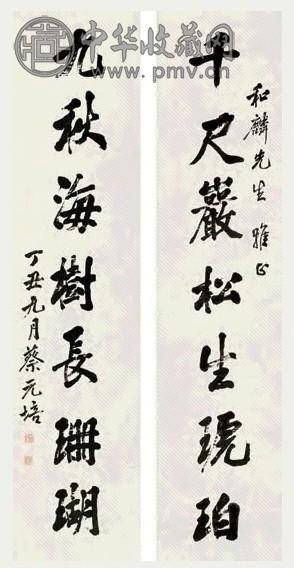 中华收藏网
www.pmv.cn
和麟先生雅正
千尺巖松生琥珀
九秋海樹長珊瑚
丁丑九月蔡元培